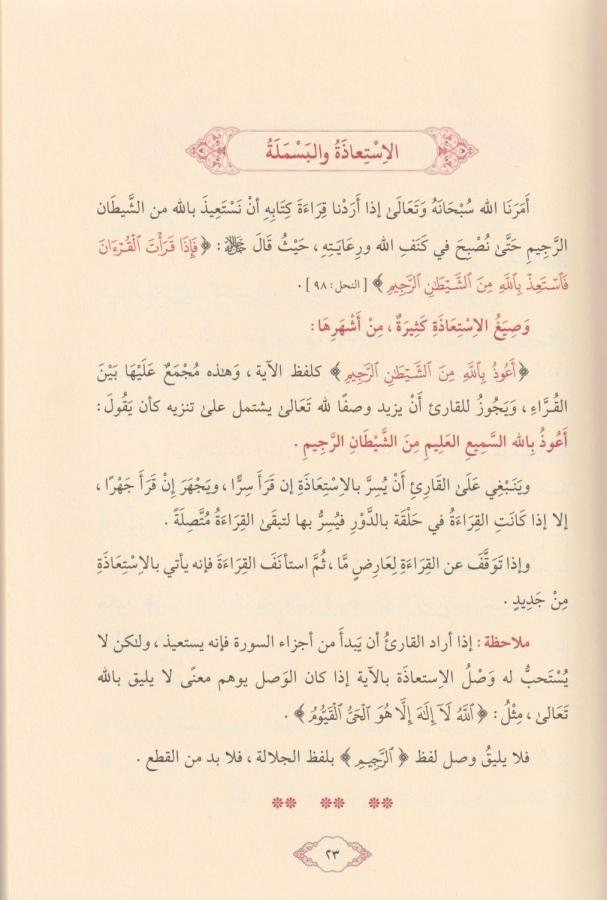 الِاسْتِعاذَةُ والبَسْمَلَةُ
أَمَرَنَا الله سُبْحَانَهُ وَتَعَالَىٰ إذا أَرَدْنا قِرَاءَةَ كِتابِهِ أنْ نَسْتَعِيذَ بالله من الشَّيطَان
الرَّجِيمِ حَتَّىٰ نُصْبِحَ في كَنَفِ الله ورِعَايَـتِهِ ، حَيْثُ قَالَ ﷻ : ﴿ فَإِذَا قَرَأْتَ ٱلْقُرْءَانَ
فَٱسْتَعِذْ بِٱللَّهِ مِنَ ٱلشَّيْطَٰنِ ٱلرَّجِيمِ ﴾ [ النحل: ٩٨ ] .
وَصِيَغُ الِاسْتِعَاذَةِ كَثِيرَةٌ ، مِنْ أَشْهَرِهَا :
﴿ أَعُوذُ بِٱللَّهِ مِنَ ٱلشَّيْطَٰنِ ٱلرَّجِيمِ ﴾ كلفظ الآية ، وَهـٰذه مُجْمَعٌ عَلَيْهَا بَيْنَ
القُـرَّاءِ ، وَيَجُوزُ للقارئ أَنْ يزيد وصفًا لله تَعَالىٰ يشتمل علىٰ تنزيه كأن يَقُولَ :
أَعُوذُ بِالله السَّمِيعِ العَلِيمِ مِنَ الشَّيْطَانِ الرَّجِيمِ .
ويَنْبَغِي عَلَىٰ القَارِئِ أَنْ يُسِرَّ بالاِسْتِعَاذَةِ إن قَرَأَ سِرًّا ، ويَجْهَرَ إنْ قَرَأَ جَهْرًا ،
إلا إذا كَانَتِ القِرَاءَةُ في حَلْقَة بالدَّوْرِ فيُسِرُّ بها لتبقَىٰ القِرَاءَةُ مُتَّصِلَةً .
وإذا تَوَقَّفَ عن القِرَاءَةِ لِعَارِضٍ مَّا ، ثُمَّ استأنَفَ القِرَاءَةَ فإنه يأتي بالاِسْتِعَاذَةِ
مِنْ جَدِيدٍ .
ملاحظة : إذا أراد القارئُ أن يَبدأَ من أجزاء السورة فإنه يستعيذ ، ولـٰكن لا
يُسْتَحبُّ له وَصْلُ الاِستعاذَة بالآية إذا كان الوَصل يوهم معنًى لا يليق بالله
تَعَالىٰ ، مِثْلُ : ﴿ ٱللَّهُ لَآ إِلَٰهَ إِلَّا هُوَ ٱلْحَىُّ ٱلْقَيُّومُ ﴾ .
فلا يليقُ وصل لفظ ﴿ ٱلرَّجِيمِ ﴾ بلفظ الجلالة ، فلا بد من القطع .
٢٣